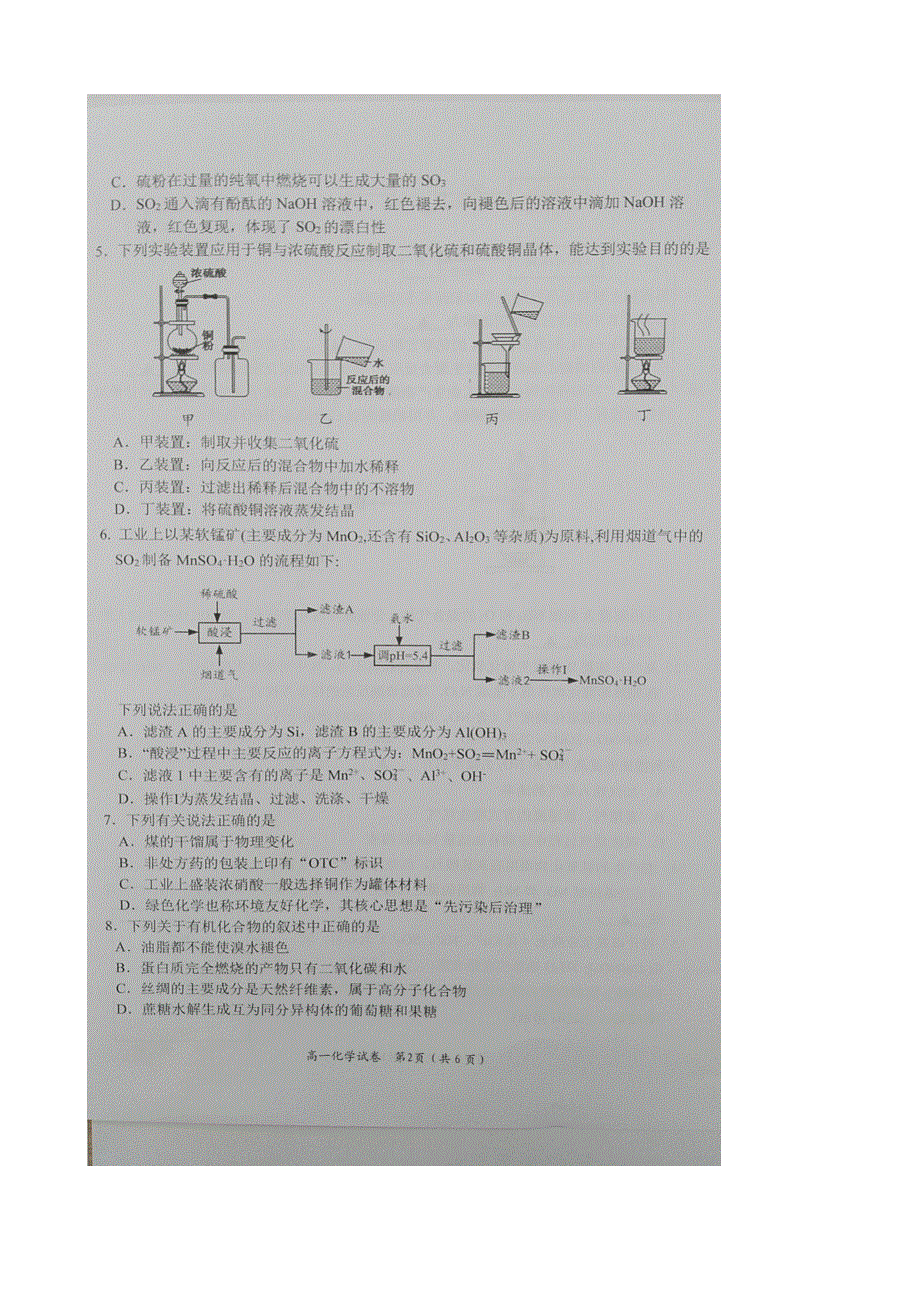 C．硫粉在过量的纯氧中燃烧可以生成大量的 SO₃
D．SO₂通入滴有酚酞的 NaOH 溶液中，红色褪去，向褪色后的溶液中滴加 NaOH 溶
液，红色复现，体现了 SO₂的漂白性
5．下列实验装置应用于铜与浓硫酸反应制取二氧化硫和硫酸铜晶体，能达到实验目的的是
浓硫酸
铜粉
水
反应后的
混合物
甲 乙 丙 丁
A．甲装置：制取并收集二氧化硫
B．乙装置：向反应后的混合物中加水稀释
C．丙装置：过滤出稀释后混合物中的不溶物
D．丁装置：将硫酸铜溶液蒸发结晶
6. 工业上以某软锰矿(主要成分为 MnO₂,还含有 SiO₂、Al₂O₃等杂质)为原料,利用烟道气中的
SO₂制备 MnSO₄·H₂O 的流程如下:
稀硫酸
软锰矿 酸浸 过滤 滤渣A
烟道气
滤液1 氨水 调pH=5.4 过滤 滤渣B
滤液2 操作I MnSO₄·H₂O
下列说法正确的是
A．滤渣 A 的主要成分为 Si，滤渣 B 的主要成分为 Al(OH)₃
B．“酸浸”过程中主要反应的离子方程式为：MnO₂+SO₂═Mn²⁺+ SO₄²⁻
C．滤液 1 中主要含有的离子是 Mn²⁺、SO₄²⁻、Al³⁺、OH⁻
D．操作I为蒸发结晶、过滤、洗涤、干燥
7．下列有关说法正确的是
A．煤的干馏属于物理变化
B．非处方药的包装上印有“OTC”标识
C．工业上盛装浓硝酸一般选择铜作为罐体材料
D．绿色化学也称环境友好化学，其核心思想是“先污染后治理”
8．下列关于有机化合物的叙述中正确的是
A．油脂都不能使溴水褪色
B．蛋白质完全燃烧的产物只有二氧化碳和水
C．丝绸的主要成分是天然纤维素，属于高分子化合物
D．蔗糖水解生成互为同分异构体的葡萄糖和果糖
高一化学试卷 第2页（共6页）